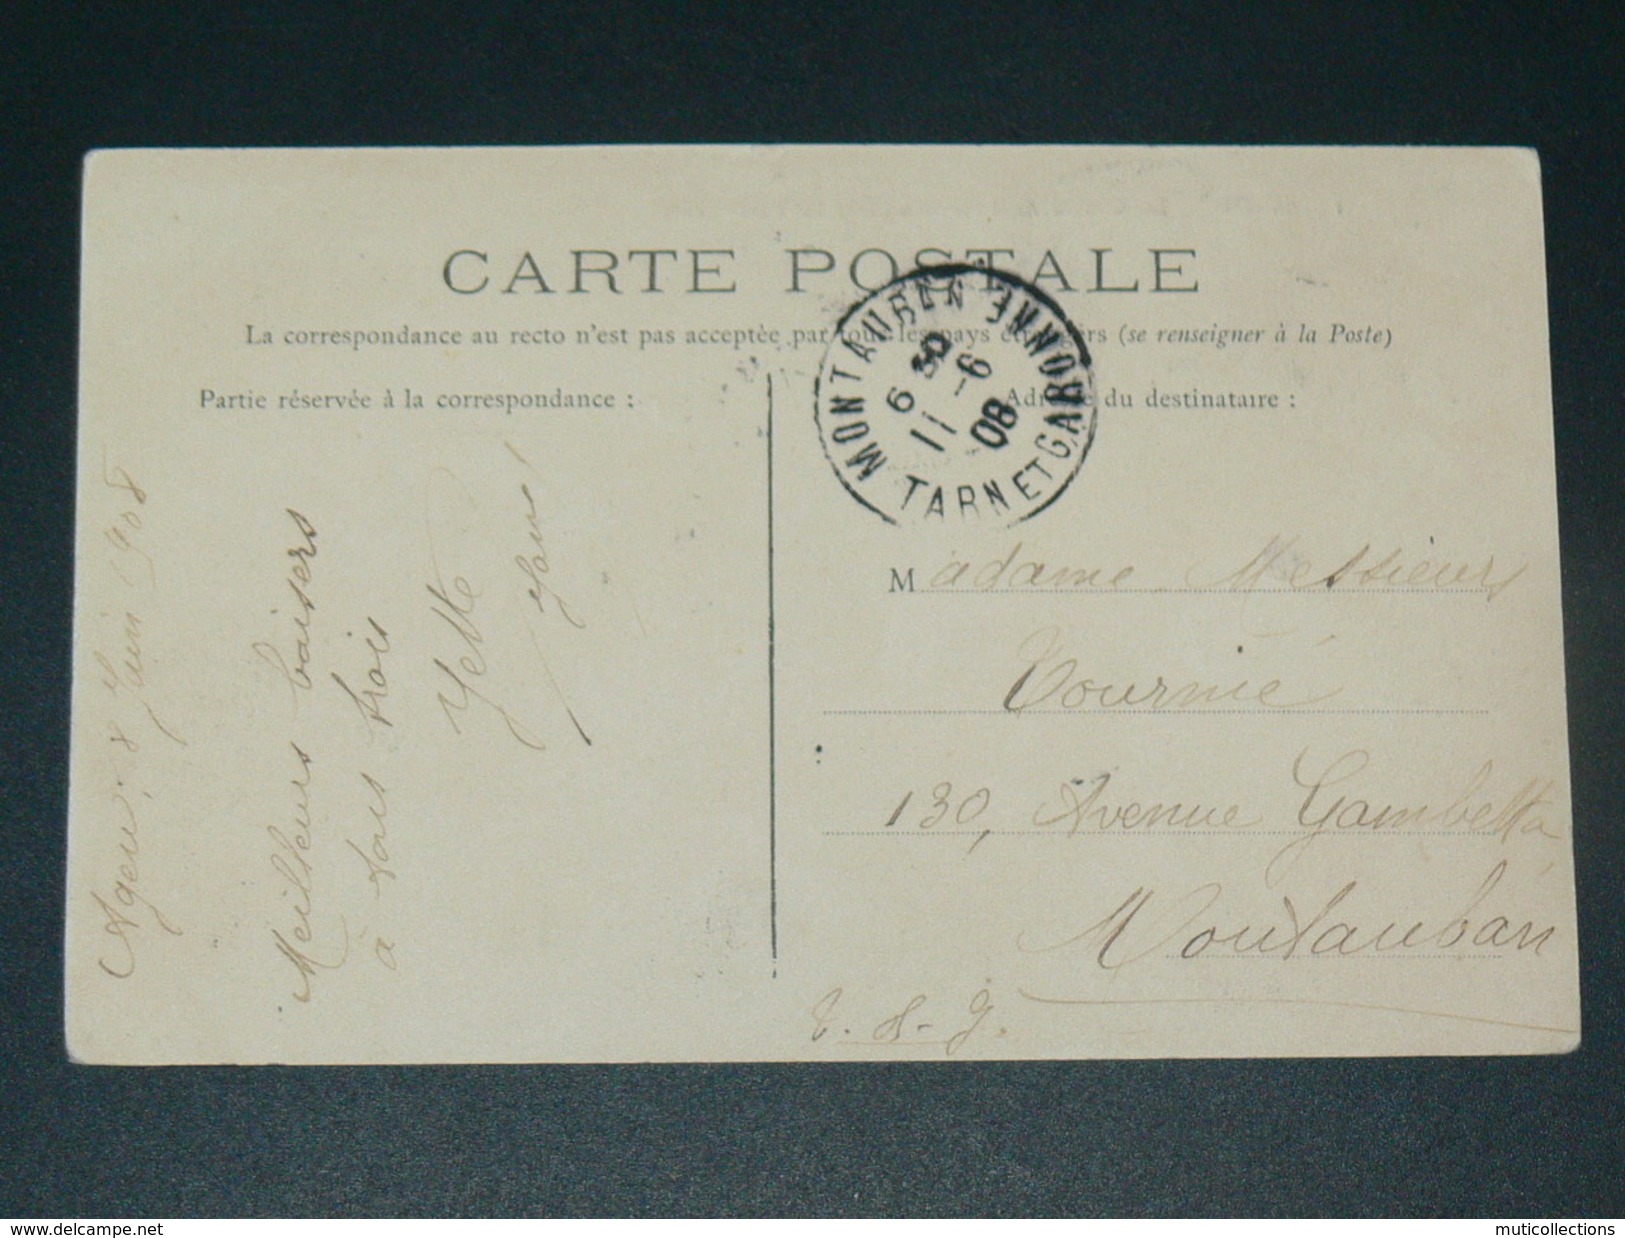 CARTE POSTALE
La correspondance au recto n'est pas acceptée par tous les pays étrangers (se renseigner à la Poste)
Partie réservée à la correspondance :
Adresse du destinataire :
MONTAUBAN
TARN ET GARONNE
6 30
11 -6
08
Agen, 8 Juin 1908
Meilleurs baisers
à tous trois
Yette
Madame Messieurs
Tournié
130, Avenue Gambetta
Montauban
T. &. G.
www.delcampe.net
muticollections